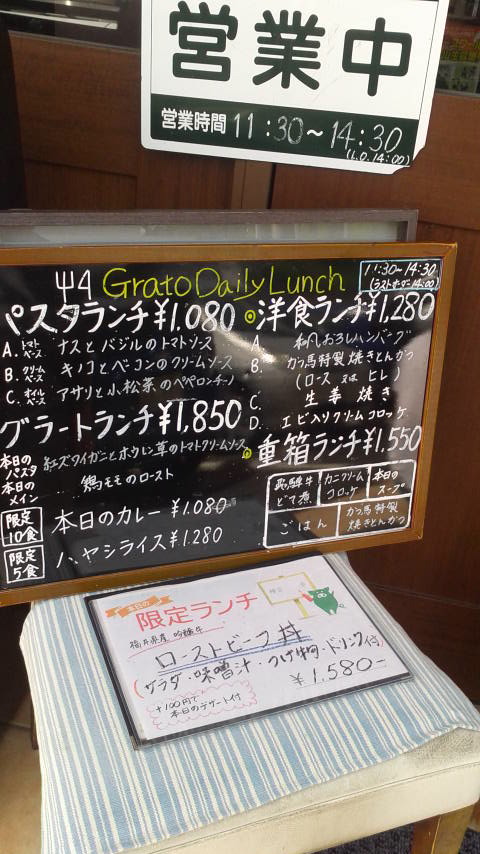 営業中
営業時間 11:30～14:30
(L.O.14:00)
Grato Daily Lunch
11:30～14:30
(ラストオーダー14:00)
パスタランチ¥1,080
A. トマトベース ナスとバジルのトマトソース
B. クリームベース キノコとベーコンのクリームソース
C. オイルベース アサリと小松菜のペペロンチーノ
グラートランチ¥1,850
本日のパスタ 紅ズワイガニとホウレン草のトマトクリームソース
本日のメイン 鶏モモのロースト
限定10食 本日のカレー ¥1,080
限定5食 ハヤシライス ¥1,280
洋食ランチ¥1,280
A. 和風おろしハンバーグ
B. かつ馬特製 焼きとんかつ
(ロース 又は ヒレ)
C. 生姜焼き
D. エビ入りクリームコロッケ
重箱ランチ¥1,550
飛騨牛どて煮
カニクリームコロッケ
本日のスープ
ごはん
かつ馬特製焼きとんかつ
本日の
限定ランチ
福井県産
ローストビーフ丼
(サラダ・味噌汁・つけ物・ドリンク付)
¥1,580-
+100円で
本日のデザート付